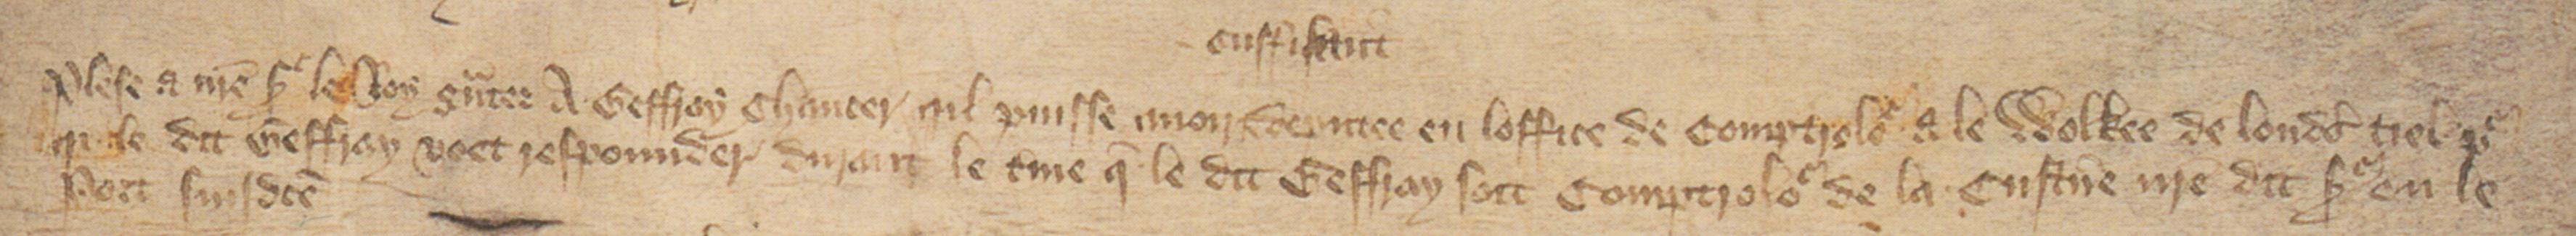 suffisaunt
Plese a nre sr le Roy graunter A Geffray Chaucer qil puisse avoir deputee en loffice de Comptrolor a le Wolkee de londs tiel pr
qi le dit Geffray voet respounder durant le tme q le dit Geffray soit Comptrolor de la Custume nre dit sr en le
Port susdce